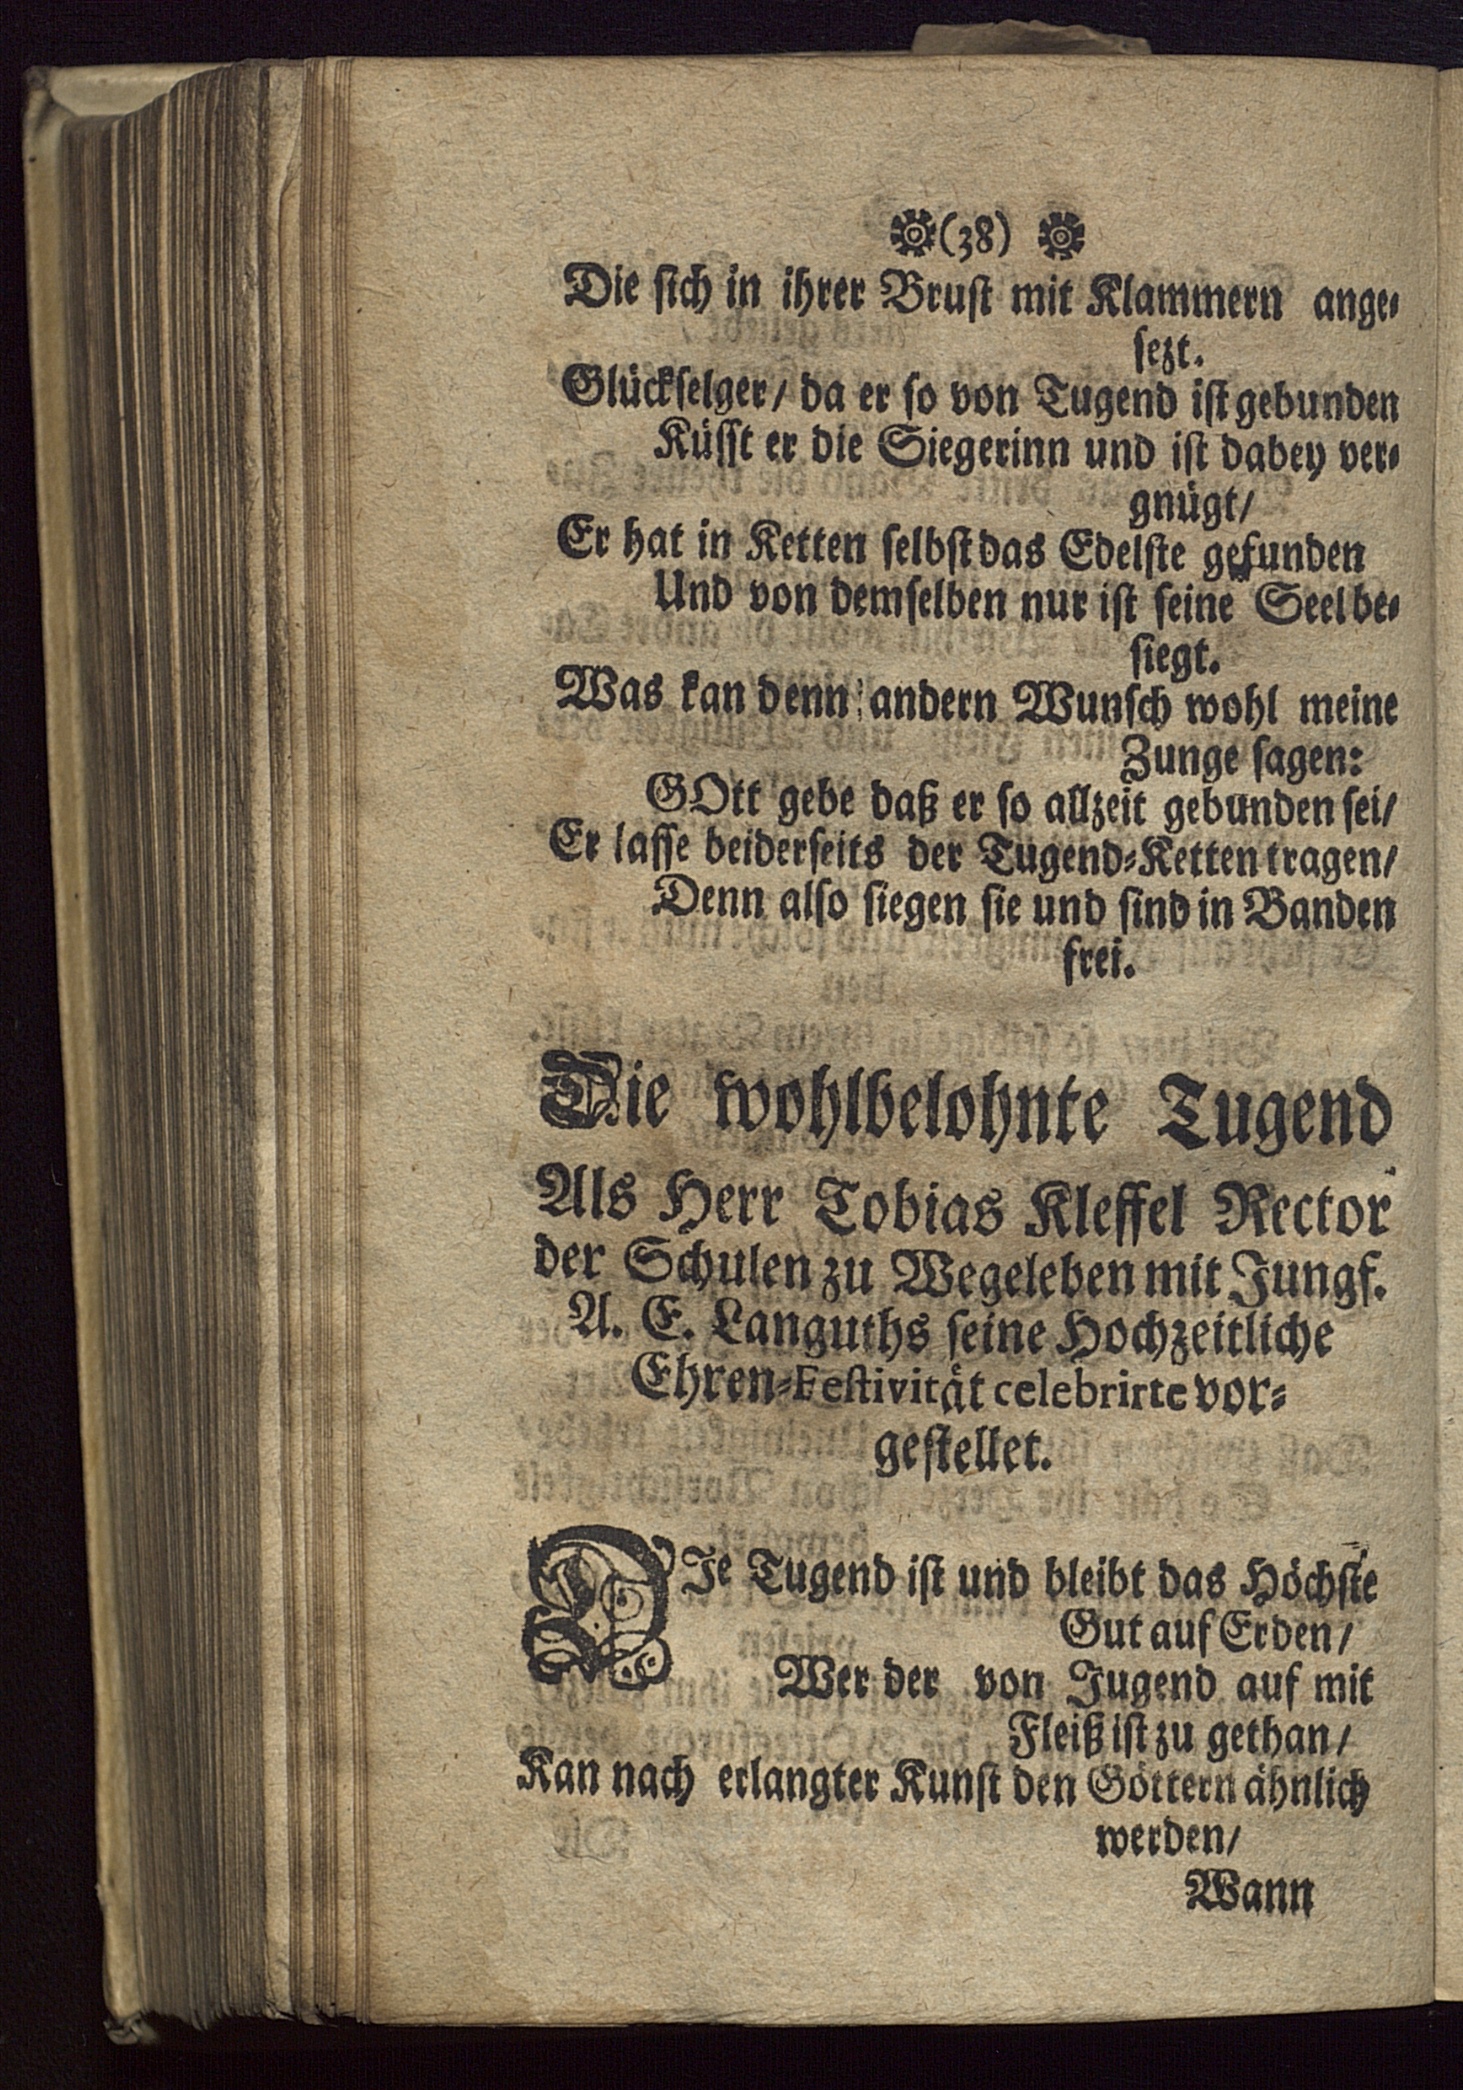 (38)
Die ſich in ihrer Bruſt mit Klammern ange⸗
ſezt.
Glückſelger/ da er ſo von Tugend iſt gebunden
Küſſt er die Siegerinn und iſt dabey ver⸗
gnügt/
Er hat in Ketten ſelbſt das Edelſte gefunden
Und von demſelben nur iſt ſeine Seel be⸗
ſiegt.
Was kan denn andern Wunſch wohl meine
Zunge ſagen:
GOtt gebe daß er ſo allzeit gebunden ſei/
Er laſſe beiderſeits der Tugend⸗Ketten tragen/
Denn alſo ſiegen ſie und ſind in Banden
frei.
Die wohlbelohnte Tugend
Als Herr Tobias Kleffel Rector
der Schulen zu Wegeleben mit Jungf.
A. E. Languths ſeine Hochzeitliche
Ehren⸗Feſtivität celebrirte vor⸗
geſtellet.
DIe Tugend iſt und bleibt das Höchſte
Gut auf Erden/
Wer der von Jugend auf mit
Fleiß iſt zu gethan/
Kan nach erlangter Kunſt den Göttern ähnlich
werden/
Wann